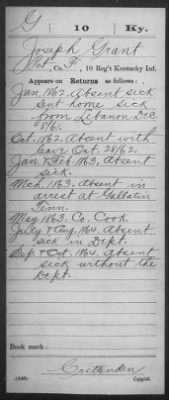 G | 10 | Ky.
Joseph Grant
Pvt., Co. F, 10 Reg't Kentucky Inf.
Appears on Returns as follows:
Jan. 1862. Absent sick
sent home sick
from Lebanon Dec
8/61.
Oct. 1862. Absent with
leave Oct. 28/62.
Jan & Feb. 1863, Absent
sick.
Mch. 1863, Absent in
arrest at Gallatin
Tenn.
May 1863. Co. Cook.
July & Aug. 164. Absent
sick in Dept.
Sep & Oct. 1864. Absent
sick without the
Dept.
Book mark:
Crittenden
Copyist.